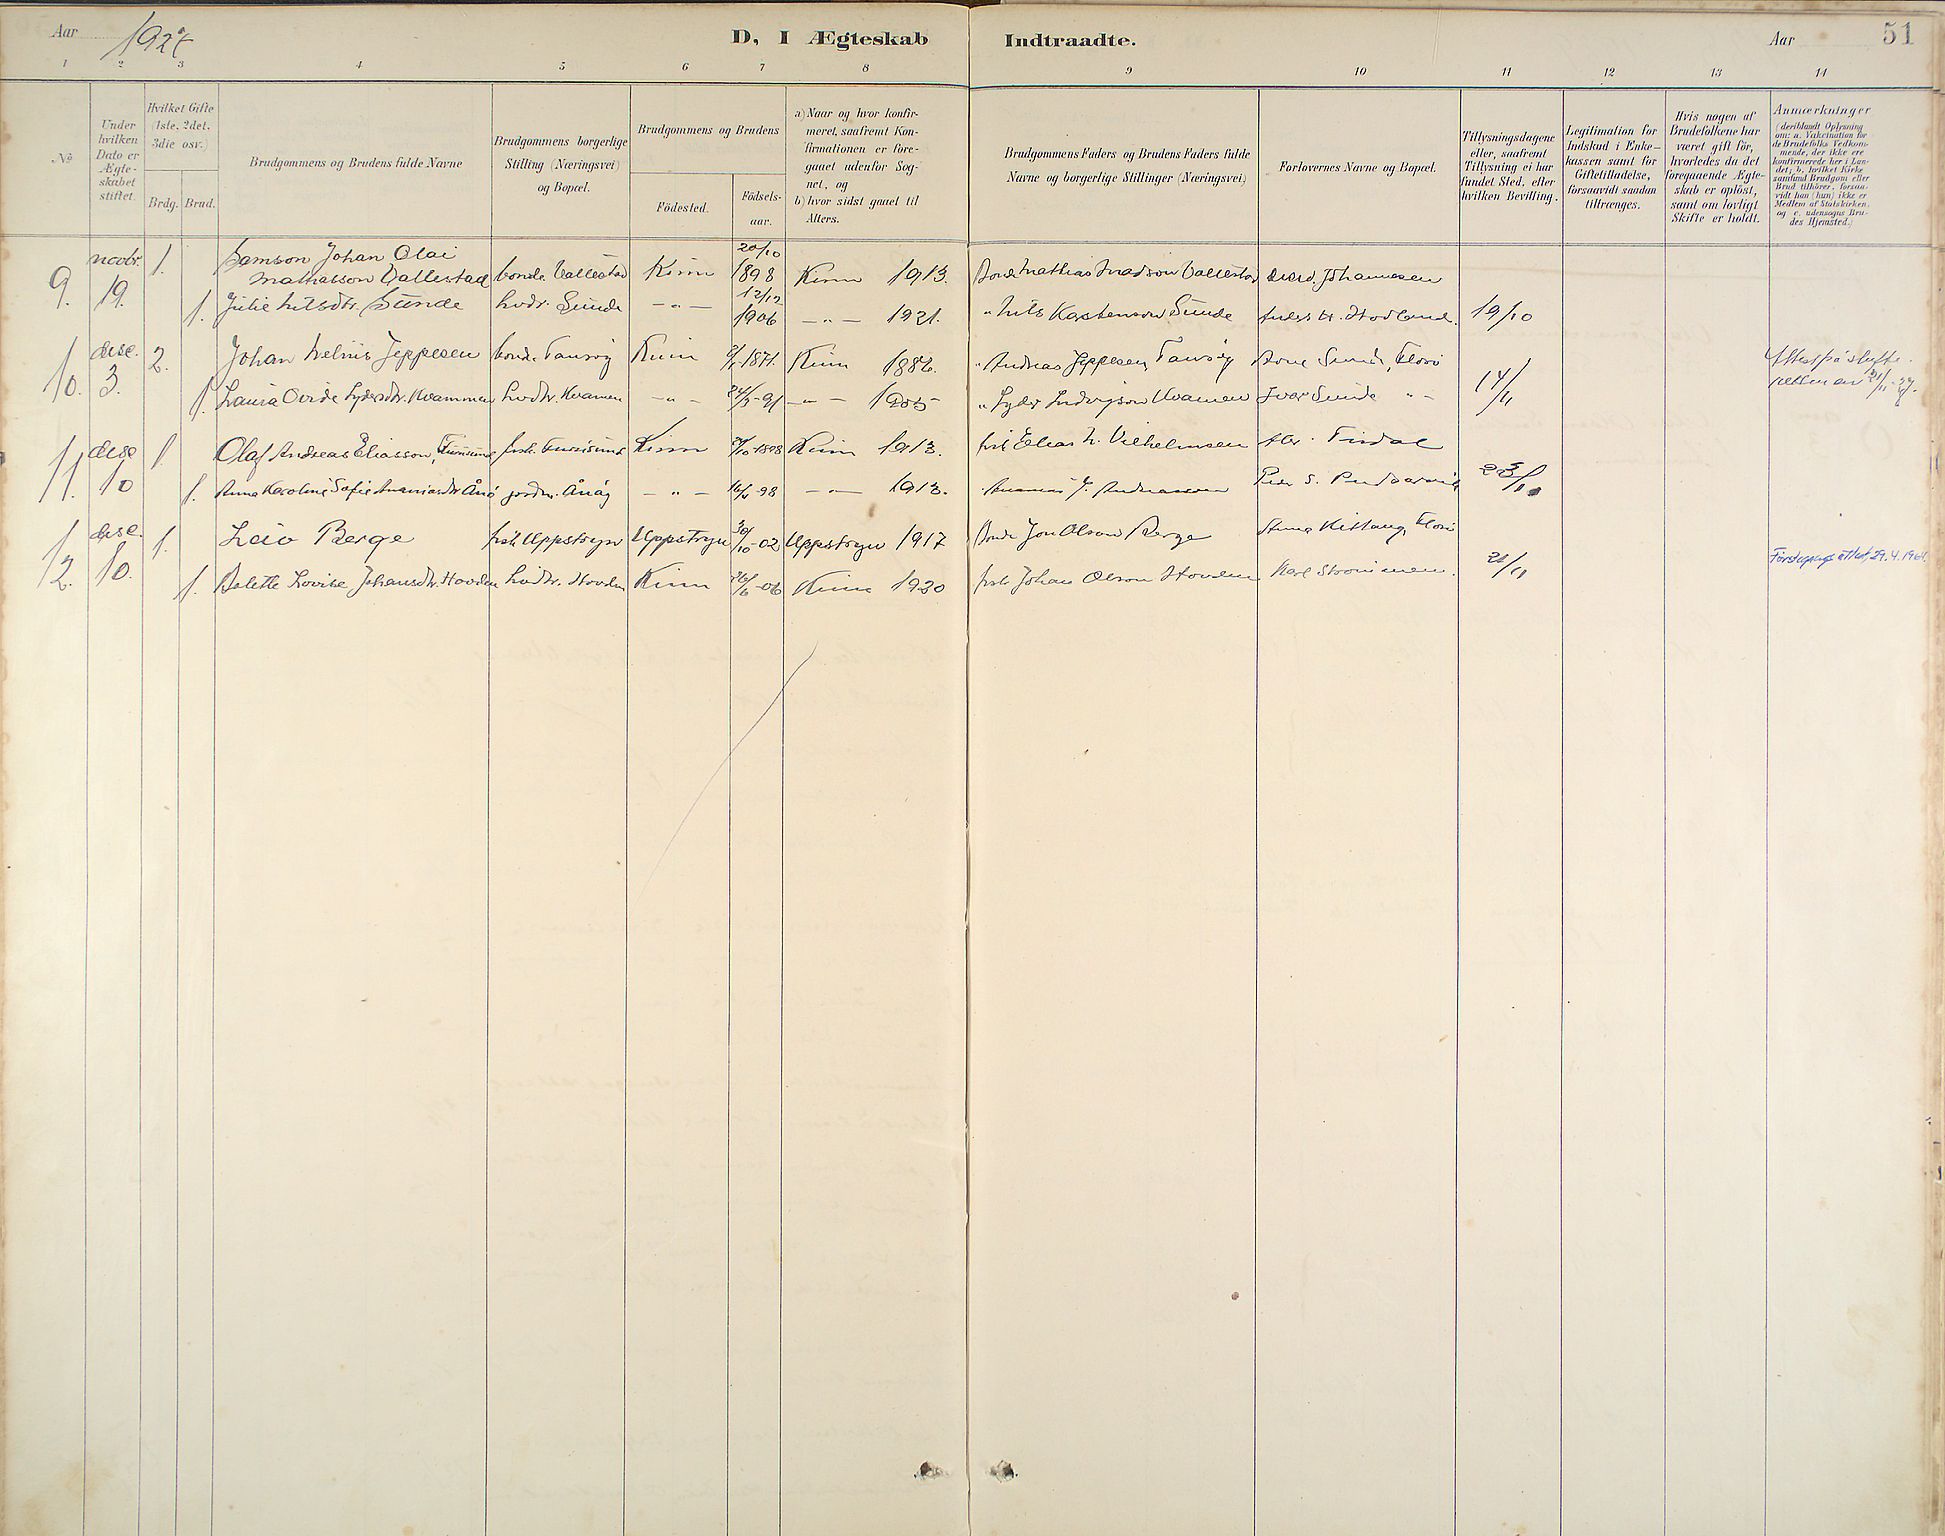 Aar 1927
D, I Ægteskab Indtraadte.
Aar 51
1 2 3 4 5 6 7 8 9 10 11 12 13 14
No
Under hvilken Dato er Ægte-skabet stiftet.
Hvilket Gifte (1ste, 2det, 3die osv.)
Brdg. Brud.
Brudgommens og Brudens fulde Navne
Brudgommens borgerlige Stilling (Næringsvei) og Bopæl.
Brudgommens og Brudens
Födested. Födsels-aar.
a) Naar og hvor konfir-meret, saafremt Kon-firmationen er fore-gaaet udenfor Sog-net, og
b) hvor sidst gaaet til Alters.
Brudgommens Faders og Brudens Faders fulde Navne og borgerlige Stillinger (Næringsvei)
Forlovernes Navne og Bopæl.
Tillysningsdagene eller, saafremt Tillysning ei har fundet Sted, efter hvilken Bevilling.
Legitimation for Indskud i Enke-kassen samt for Giftetilladelse, forsaavidt saadan tiltrænges.
Hvis nogen af Brudefolkene har været gift för, hvorledes da det foregaaende Ægte-skab er oplöst, samt om lovligt Skifte er holdt.
Anmærkninger
(deriblandt Oplysning om: a. Vakcination for de Brudefolks Vedkom-mende, der ikke ere konfirmerede her i Lan-det; b. hvilket Kirke samfund Brudgom eller Brud tilhörer, forsaa-vidt han (hun) ikke er Medlem af Statskirken, og c. udensogns Bru-des Hjemsted.)
9. novbr. 19. 1. Samson Johan Olai Mathiasson Vallestad bonde Vallestad Kinn 20/10 1898 Kinn 1913. Bonde Mathias Madsen Vallestad Johannesen
1. Julie Nilsdtr. Sunde husdr. Sunde — " — 12/12 1906 — " — 1921. " Nils Karstenson Sunde Anders Hovland. 19/10
10. dese. 3. 2. Johan Jeppesen bonde Tansöy Kinn 1871. Kinn 1886. " Andreas Jeppesen Tansöy Arne Sunde, Florö
1. Laura Lydersdtr. Kvammen husdtr. Kvamen — " — 24/3-91 — " — 1905 " Lyder Ludvigson Kvamen Ivar Sunde " - 14/11
11. dese 10 1. Olaf Andreas Eliasson, Furesund fisk. Furesund Kinn 1898 Kinn 1913. fisk Elias N. Vilhelmsen
1. Anna Karoline Sofie Ananiasdtr Ånö jordm. Ånöy — " — -98 — " — 1913. Ananias J. Andreassen Peder S. 23/11.
12. dese. 10. 1. Leiv Berge fisk Uppstryn Uppstryn 30/10-02 Uppstryn 1917 Bonde Jon Olson Berge Kittang, Florö
1. Dalette Lovise Johansdtr. Hovden husdtr. Hovden Kinn 26/6-06 Kinn 1920 fisk Johan Olson Hovden Karl Strömmen. 21/11 29.4.1961.